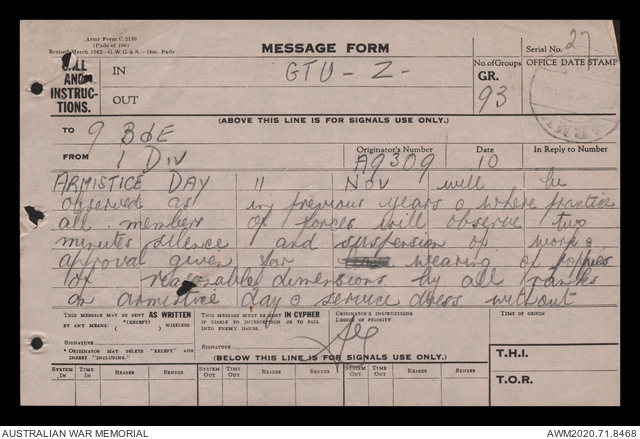 Army Form C.2130
(Pads of 100)
Revised March 1942—G.W.G.&S.—18m. Pads
MESSAGE FORM
Serial No. 27
CALL
AND
INSTRUC-
TIONS.
IN
GTU - Z -
No. of Groups
GR.
93
OFFICE DATE STAMP
OUT
(ABOVE THIS LINE IS FOR SIGNALS USE ONLY.)
TO 9 BdE
FROM 1 DIV
Originator's Number
A9309
Date
10
In Reply to Number
ARMISTICE DAY 11 Nov will be
observed as in previous years o where practice
all members of forces will observe two
minutes silence and suspension of work o
approval given for wearing of poppies
of reasonable dimensions by all ranks
on armistice day o service dress without
THIS MESSAGE MAY BE SENT AS WRITTEN
BY ANY MEANS (EXCEPT) WIRELESS
SIGNATURE
* ORIGINATOR MAY DELETE "EXCEPT" AND
INSERT "INCLUDING."
THIS MESSAGE MUST BE SENT IN CYPHER
IF LIABLE TO INTERCEPTION OR TO FALL
INTO ENEMY HANDS.
SIGNATURE
ORIGINATOR'S INSTRUCTIONS
DEGREE OF PRIORITY
TIME OF ORIGIN
(BELOW THIS LINE IS FOR SIGNALS USE ONLY.)
T.H.I.
T.O.R.
SYSTEM IN TIME IN READER SENDER SYSTEM OUT TIME OUT READER SENDER SYSTEM OUT TIME OUT READER SENDER
AUSTRALIAN WAR MEMORIAL
AWM2020.71.8468